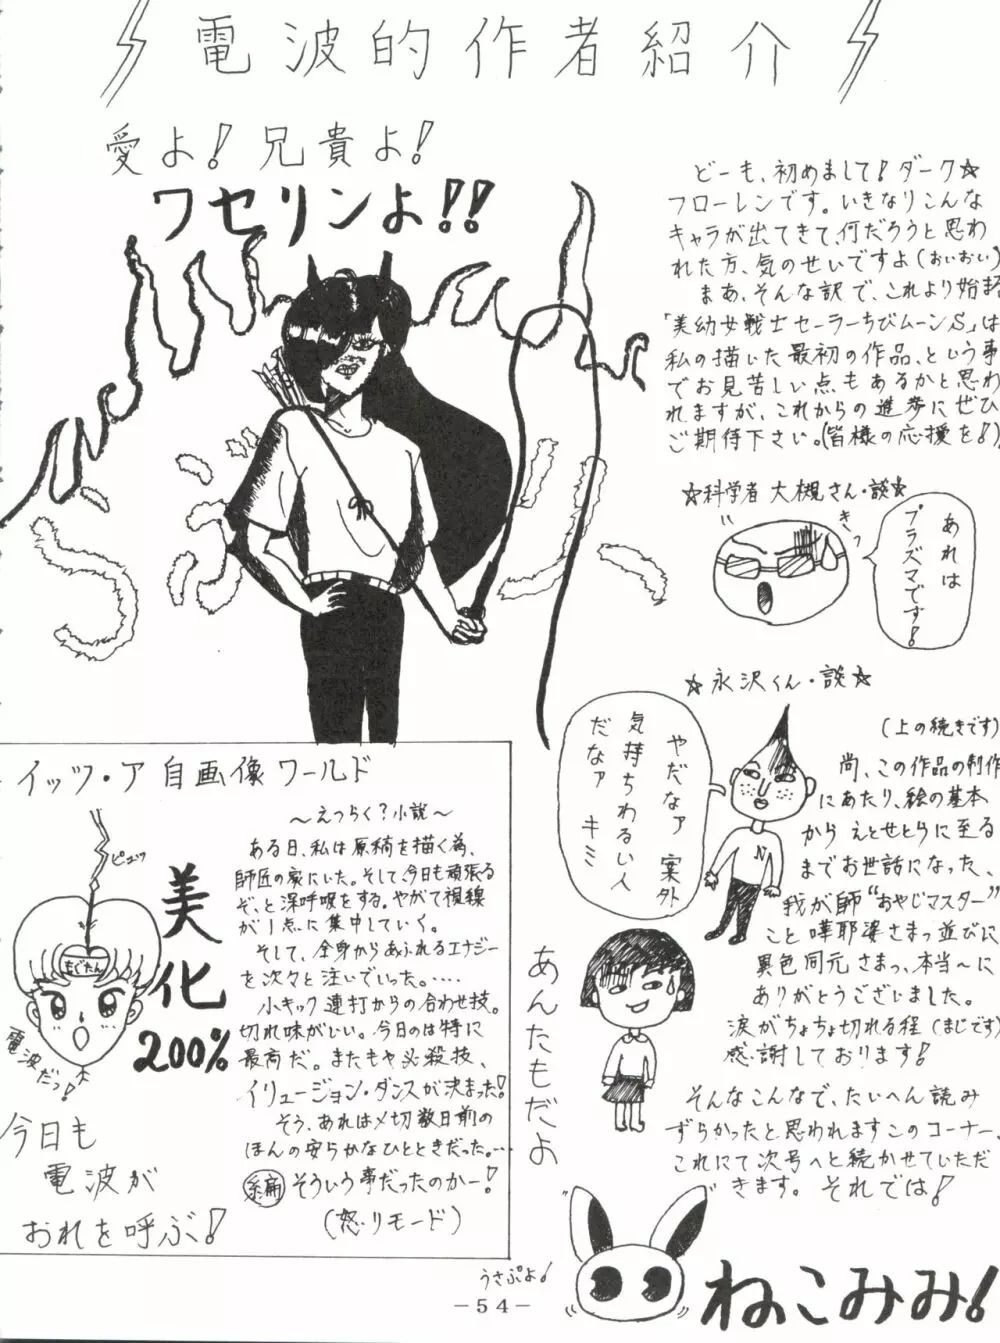 電波的作者紹介
愛よ!兄貴よ!
ワセリンよ!!
どーも、初めまして!ダーク☆
フローレンです。いきなりこんな
キャラが出てきて、何だろうと思わ
れた方、気のせいですよ(おいおい)
まあ、そんな訳で、これより始まる
「美幼女戦士セーラーちびムーンS」は
私の描いた最初の作品、という事
でお見苦しい点もあるかと思わ
れますが、これからの進歩にぜひ
ご期待下さい。(皆様の応援を!)
☆科学者 大槻さん・談☆
きっ
あれは
プラズマです!
☆永沢くん・談☆
やだなァ 案外
気持ちわるい人
だなァ キミ
N
あんたもだよ
(上の続きです)
尚、この作品の制作
にあたり、絵の基本
から えとせとらに至る
までお世話になった、
我が師“おやじマスター”
こと 嘩耶婆さまっ並びに
異色同元さまっ、本当〜に
ありがとうございました。
涙がちょちょ切れる程(まじです)
感謝しております!
そんなこんなで、たいへん読み
ずらかったと思われますこのコーナー、
これにて次号へと続かせていただ
きます。それでは!
イッツ・ア 自画像ワールド
ピュッ
むぐたん
電波だっ!
美化
200%
今日も
電波が
おれを呼ぶ!
〜えっらく?小説〜
ある日、私は原稿を描く為、
師匠の家にいた。そして、今日も頑張る
ぞ、と深呼吸をする。やがて視線
が1点に集中していく。
そして、全身からあふれるエナジー
を次々と注いでいった。.....
小キック連打からの合わせ技。
切れ味がいい。今日のは特に
最高だ。またもや必殺技、
イリュージョン・ダンスが決まった!
そう、あれは〆切数日前の
ほんの安らかなひとときだった。...
編 そういう事だったのかー!
(怒・リモード)
うさぷよ!
ねこみみ!
-54-